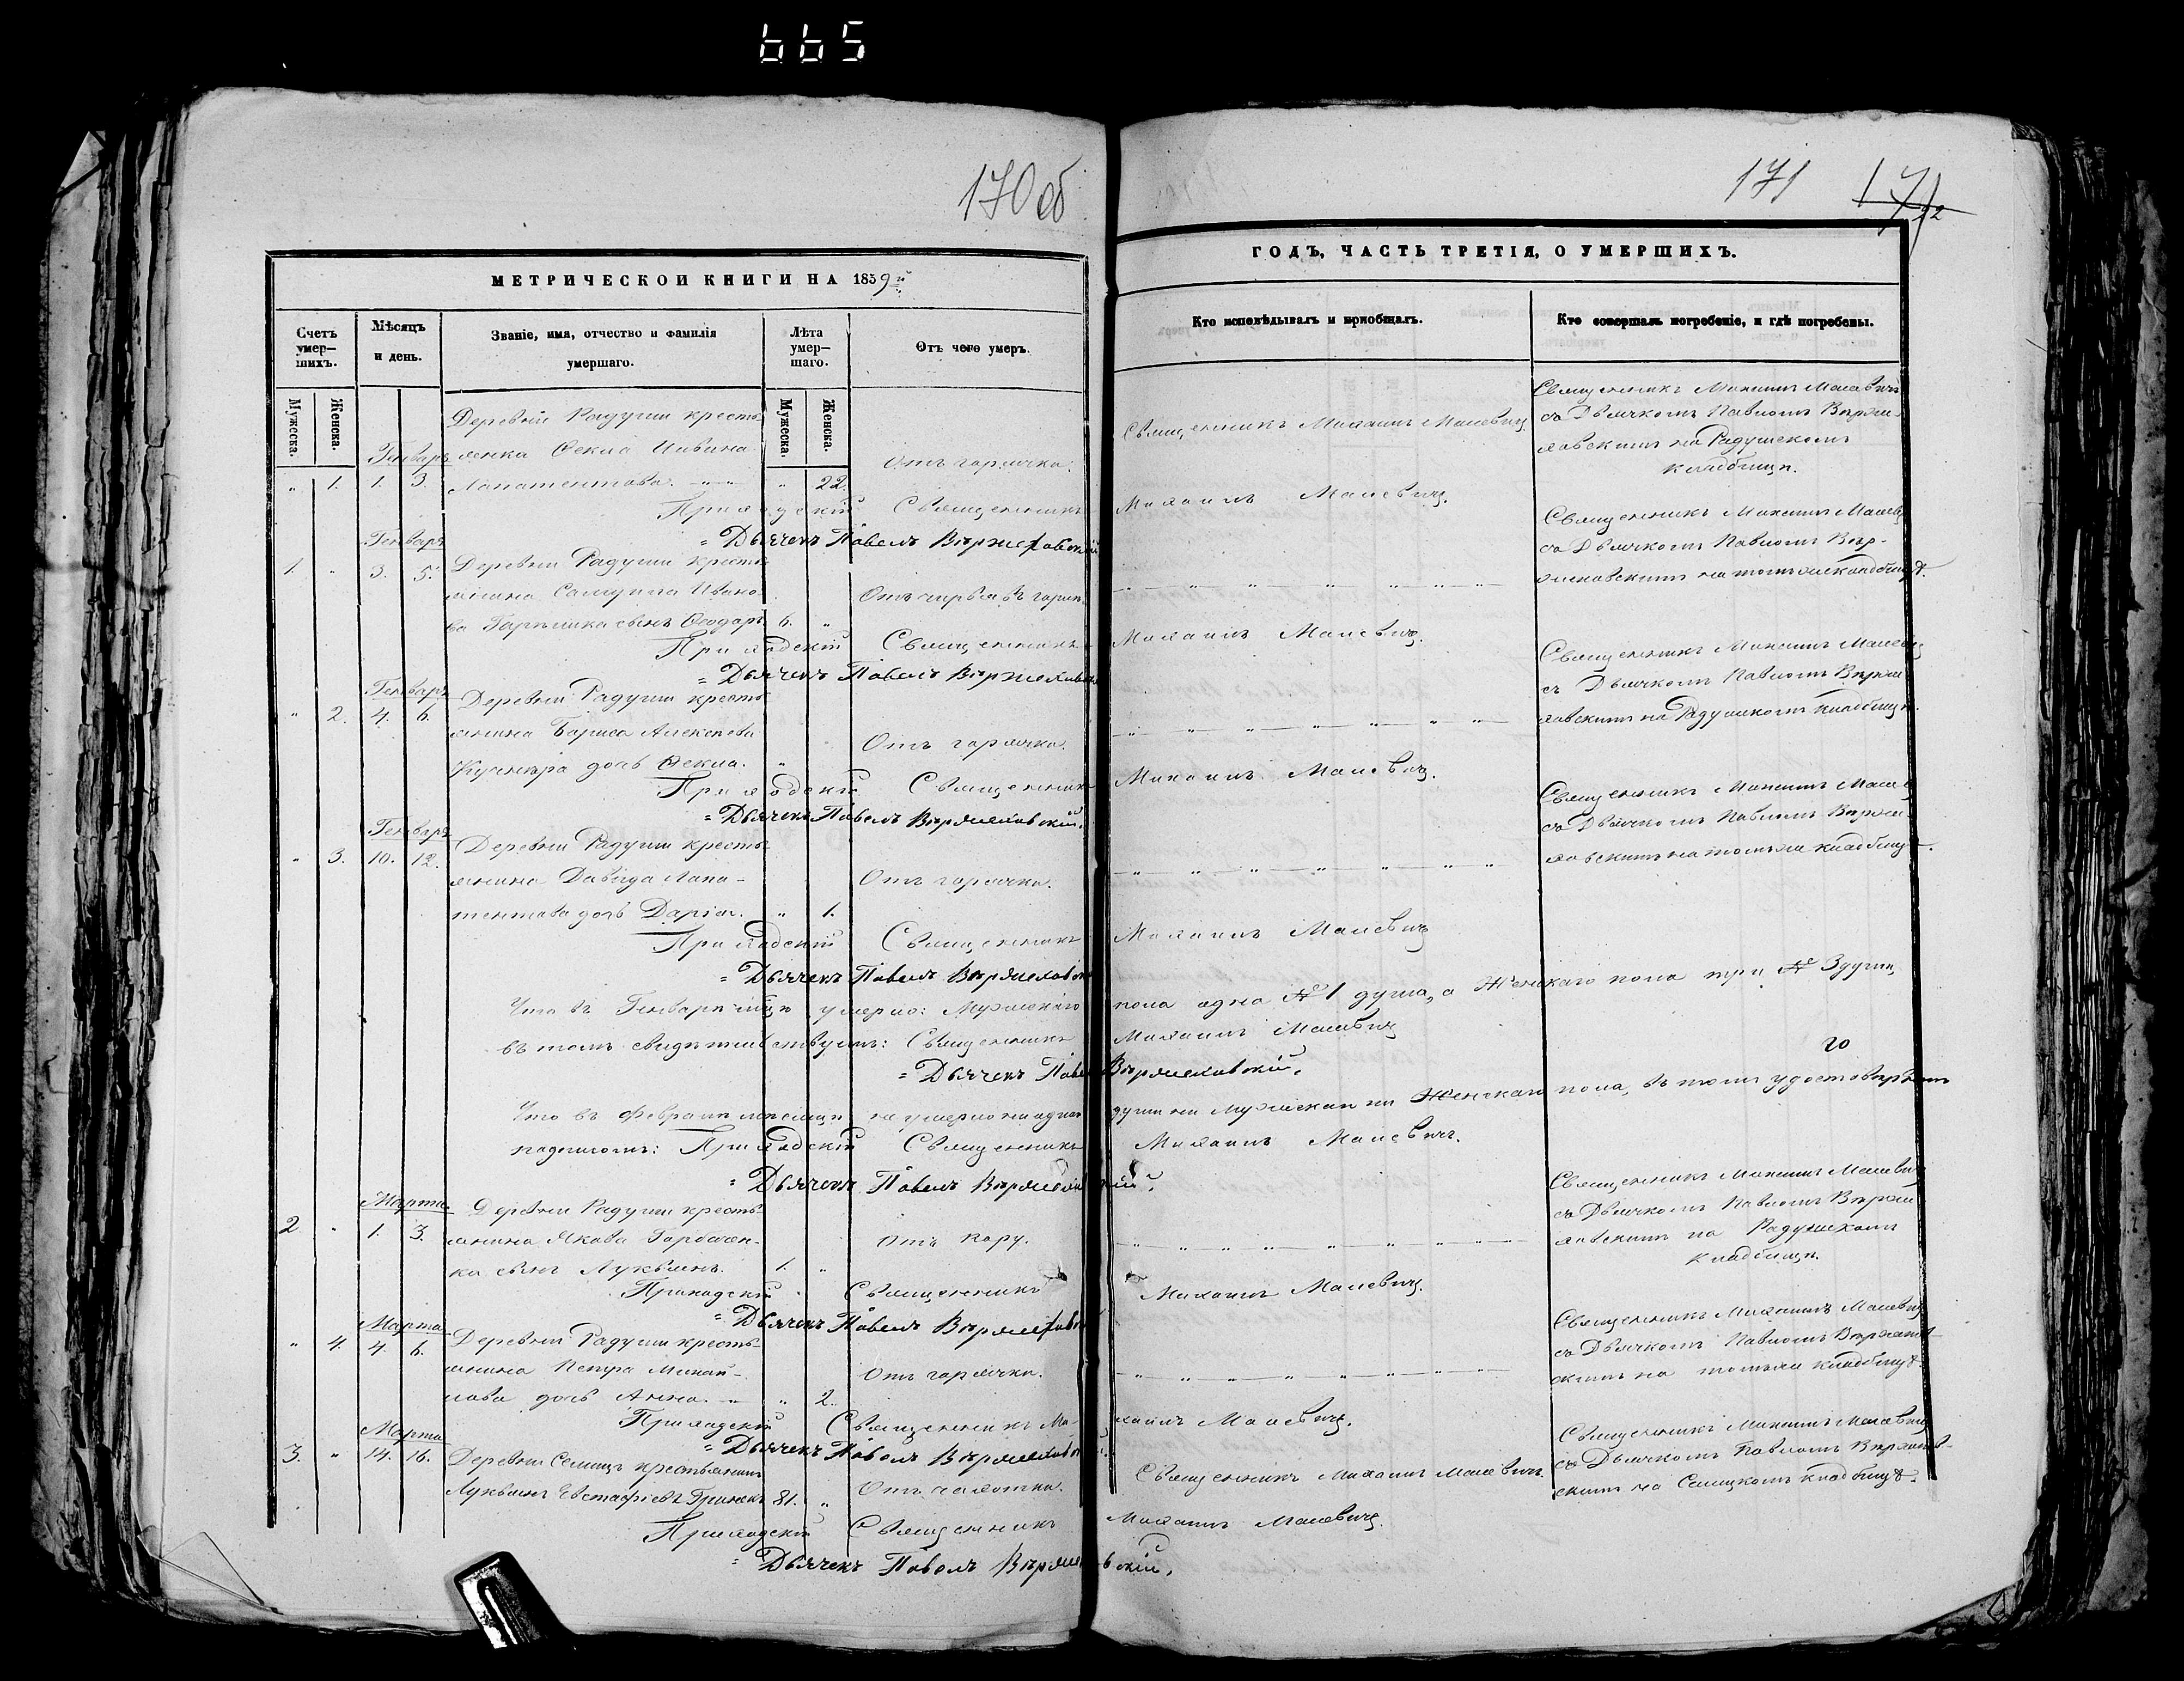 665
170 об
171
МЕТРИЧЕСКОЙ КНИГИ НА 1839й
ГОДЪ, ЧАСТЬ ТРЕТІЯ, О УМЕРШИХЪ.
Счетъ умер—шихъ.
Мѣсяцъ и день.
Званіе, имя, отчество и фамилія умершаго.
Лѣта умер—шаго.
Отъ чего умеръ.
Кто исповѣдывалъ и пріобщалъ.
Кто совершалъ погребеніе, и гдѣ погребены.
Мужеска.
Женска.
Мужеска.
Женска.
Деревни Радущи кресть-
Генваря
янка Фекла
„ 1. 1. 3.
„ 22.
Отъ горячки.
Священникъ Михаилъ Малевичъ.
Священникъ Михаилъ Малевичъ
съ Дьячкомъ Павломъ Вѣрже-
ховскимъ на Радущскомъ
кладбищѣ.
Приходскій Священникъ Михаилъ Малевичъ.
= Дьячекъ Павелъ Вѣржеховскій
Генваря
1. „ 3. 5.
Деревни Радущи кресть-
янина Самуила Ивано-
ва сынъ Ѳеодоръ 6. „
Священникъ Михаилъ Малевичъ
съ Дьячкомъ Павломъ Вѣр-
жеховскимъ на томъ же кладбищѣ.
Приходскій Священникъ Михаилъ Малевичъ.
= Дьячекъ Павелъ Вѣржеховскій
Генваря
„ 2. 4. 6.
Деревни Радущи кресть-
янина Бориса Алексѣева
дочь Ѳекла. „
Отъ горячки.
Священникъ Михаилъ Малевичъ
съ Дьячкомъ Павломъ Вѣрже-
ховскимъ на Радущскомъ кладбищѣ.
Приходскій Священникъ Михаилъ Малевичъ.
= Дьячекъ Павелъ Вѣржеховскій.
Генваря
„ 3. 10. 12.
Деревни Радущи кресть-
янина Давида Лапа-
тентова дочь Дарія. „ 1.
Отъ горячки.
Священникъ Михаилъ Малевичъ
съ Дьячкомъ Павломъ Вѣрже-
ховскимъ на томъ же кладбищѣ.
Приходскій Священникъ Михаилъ Малевичъ
= Дьячекъ Павелъ Вѣржеховскій
Что въ Генварѣ мѣсяцѣ умерло: Мужескаго пола одна № 1 душа, а Женскаго пола три № 3 души,
въ томъ свидѣтельствуемъ: Священникъ Михаилъ Малевичъ
= Дьячекъ Павелъ Вѣржеховскій.
го
Что въ Февралѣ мѣсяцѣ не умерло ни одной души ни Мужеска ни Женскаго пола, въ томъ удостовѣряемъ
подписомъ: Приходскій Священникъ Михаилъ Малевичъ.
= Дьячекъ Павелъ Вѣржеховскій.
Марта
2 „ 1. 3.
Деревни Радущи кресть-
янина Якова Горбачен-
ка сынъ Лукьянъ. 1. „
Отъ кору.
Священникъ Михаилъ Малевичъ
съ Дьячкомъ Павломъ Вѣрже-
ховскимъ на Радущскомъ
кладбищѣ.
Приходскій Священникъ Михаилъ Малевичъ.
= Дьячекъ Павелъ Вѣржеховскій
Марта
„ 4. 4. 6.
Деревни Радущи кресть-
янина Петра Михай-
лова дочь Анна. „ 2.
Отъ горячки.
Священникъ Михаилъ Малевичъ
съ Дьячкомъ Павломъ Вѣржехов-
скимъ на томъ же кладбищѣ.
Приходскій Священникъ Михаилъ Малевичъ.
= Дьячекъ Павелъ Вѣржеховскій
Марта
3. „ 14. 16.
Деревни Селищъ крестьянинъ
Лукьянъ Евстафіевъ 81. „
Отъ чахотки.
Священникъ Михаилъ Малевичъ.
Священникъ Михаилъ Малевичъ
съ Дьячкомъ Павломъ Вѣржехов-
скимъ на Селицкомъ кладбищѣ.
Приходскій Священникъ Михаилъ Малевичъ.
= Дьячекъ Павелъ Вѣржеховскій.